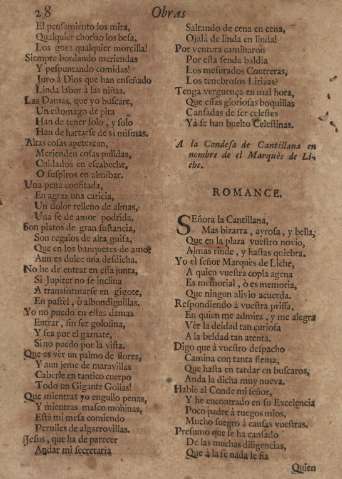 28
Obras
El pensamiento los mira,
Qualquier chorizo los besa,
Los goza qualquier morcilla!
Siempre bordando meriendas
Y pespuntando comidas?
Juro à Dios que han enseñado
Linda labor à las niñas.
Las Damas, que yo buscare,
Un estomago de pira
Han de tener solo, y solo
Han de hartarse de si mismas.
Altas cosas apetezcan,
Merienden cosas pulidas,
Cuidados en escabeche,
O suspiros en almibar.
Una pena confitada,
En agraz una caricia,
Un dolor relleno de almas,
Una fè de amor podrida.
Son platos de gran sustancia,
Son regalos de alta guisa,
Que en los banquetes de amor
Aun es dulce una desdicha.
No he de entrar en essa junta,
Si Jupiter no se inclina
A transmutarse en gigote,
En pastel, ò albondiguillas.
Yo no puedo en estas damas
Entrar, sin ser golosina,
Y sea por el garnate,
Sino puedo por la vista.
Que es ver un palmo de flores,
Y aun jeme de maravillas
Caberle en tantico cuerpo
Todo un Gigante Golias!
Que mientras yo engullo penas,
Y mientras masco mohinas,
Està mi musa comiendo
Perniles de algarrovillas.
Jesus, que ha de parecer
Andar mi secretaria
Saltando de cena en cena,
Ojalà de linda en linda!
Por ventura caminaron
Por essa senda baldia
Los mesurados Contreras,
Los tenebrosos Lirizas?
Tenga verguença en mal hora,
Que essas gloriosas boquillas
Cansadas de ser celestes
Yà se han buelto Celestinas.
A la Condesa de Cantillana en
nombre de el Marquès de Li-
che.
ROMANCE.
SEñora la Cantillana,
Mas bizarra, ayrosa, y bella;
Que en la plaza vuestro novio,
Almas rinde, y hastas quiebra.
Yo el señor Marquès de Liche,
A quien vuestra copla agena
Es memorial, ò es memoria,
Que ningun alivio acuerda.
Respondiendo à vuestra prissa,
En quien me admira, y me alegra
Vèr la deidad tan curiosa
A la beldad tan atenta.
Digo que à vuestro despacho
Camina con tanta flema,
Que hasta en tardar en buscaros,
Anda la dicha muy nueva.
Hablè al Conde mi señor,
Y he encontrado en su Excelencia
Poco padre à ruegos mios,
Mucho suegro à causas vuestras.
Presumo que se ha cansado
De las muchas diligencias,
Que à la fe nada le fia
Quien